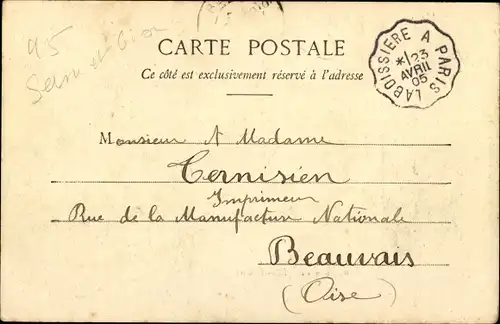 95
Seine et Oise
CARTE POSTALE
Ce côté est exclusivement réservé à l'adresse
LABOISSIERE A PARIS
*/23
AVRIL
05
Monsieur & Madame
Ternisien
Imprimeur
Rue de la Manufacture Nationale
Beauvais
(Oise)